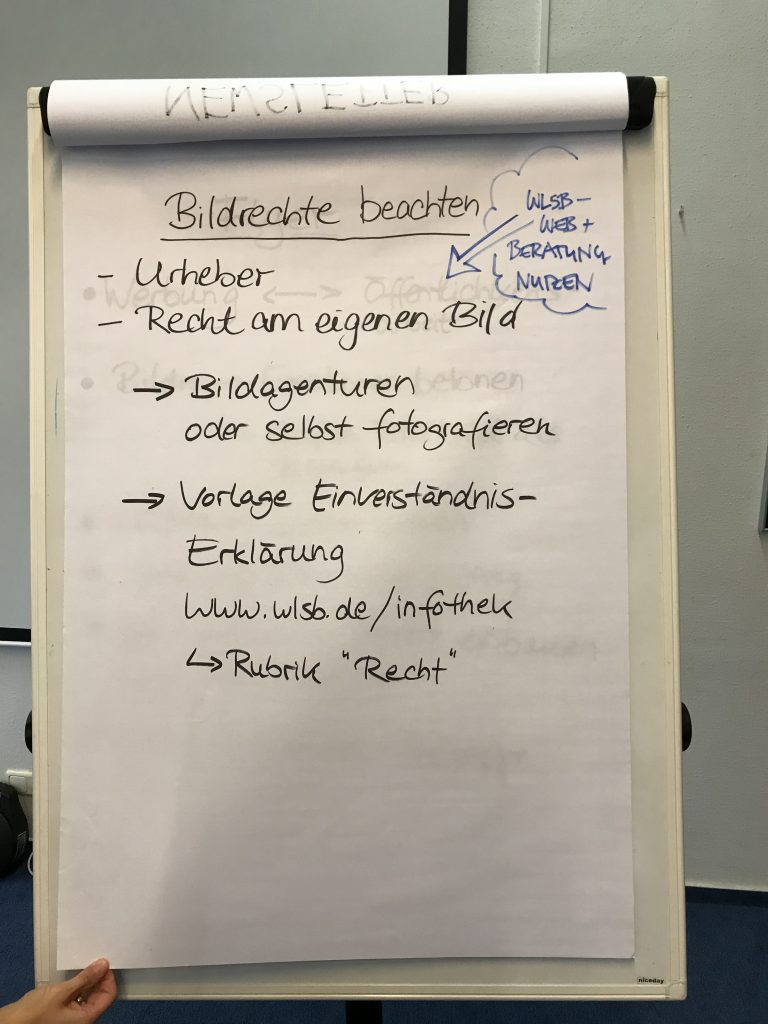 NEWSLETTER
Bildrechte beachten
WLSB-
WEB +
BERATUNG
NUTZEN
- Urheber
- Recht am eigenen Bild
→ Bildagenturen
oder selbst fotografieren
→ Vorlage Einverständnis-
Erklärung
www.wlsb.de/infothek
↳ Rubrik "Recht"
niceday